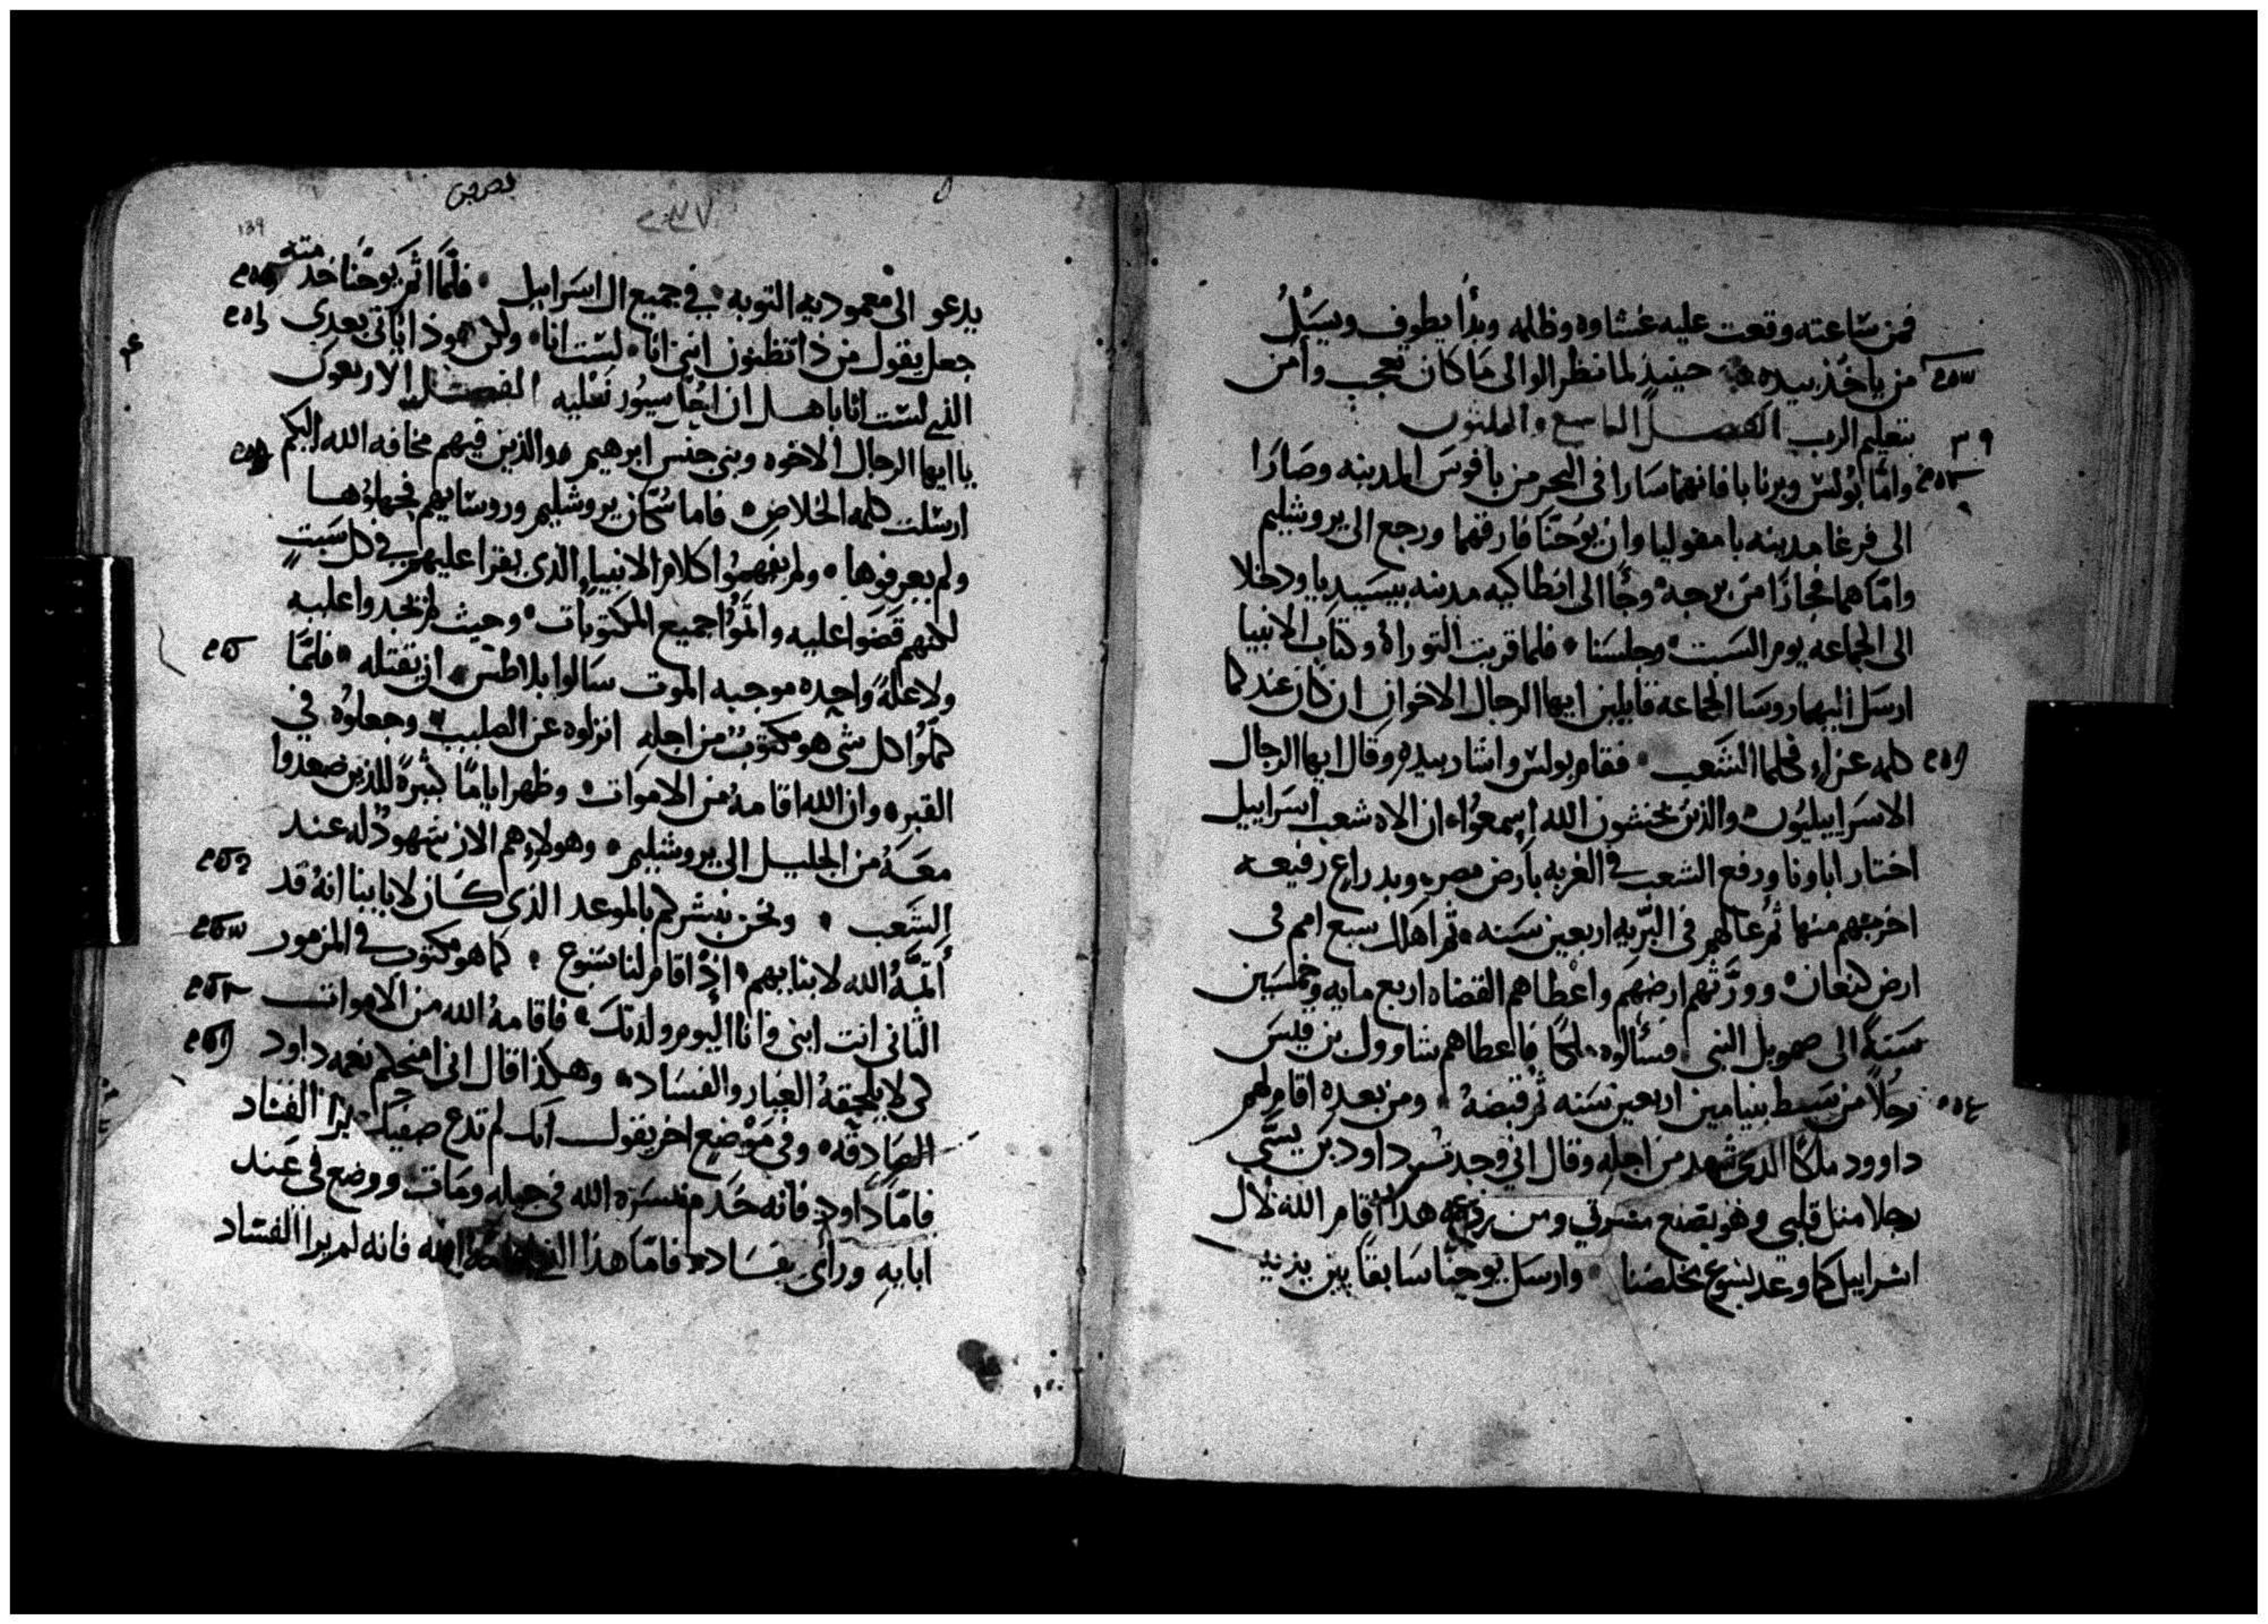 فمن ساعته وقعت عليه غشاوه وظلمه وبدأ يطوف ويسئل
من ياخذ بيده حينيذ لما نظر الوالى ما كان تعجب وأمن
بتعليم الرب الفصل التاسع والثلثون
٣٩
وأما بولس وبرنابا فانهما سارا فى البحر من بافوس المدينه وصارا
الى فرغا مدينه بامفوليا وان يوحنا فارقهما ورجع الى يروشليم
وامّا هما فجازا من برجه وجاا الى انطاكيه مدينه بيسيديا ودخلا
الى الجماعه يوم السبت وجلسا فلما قريت التوراة وكتاب الانبيا
ارسل اليهما روسا الجماعه قايلين ايها الرجال الاخوان ان كان عندكما
كلمه عزاء فكلما الشعب فقام بولس واشار بيده وقال ايها الرجال
الاسراييليون والذين يخشون الله اسمعوا ان الاه شعب اسراييل
اختار اباونا ورفع الشعب في الغربه بأرض مصر وبدراع رفيعه
اخرجهم منها ثم عالهم فى البرّيه اربعين سنه ثم اهلك سبع امم فى
ارض كنعان وورّثهم ارضهم واعطاهم القضاه اربع مايه وخمسين
سنة الى صمويل النبى فسألوه ملكا فاعطاهم شاوول بن قيس
رجلا من سبط بنيامين اربعين سنه ثم قبضه ومن بعده اقام لهم
داوود ملكًا الدى شهد من اجله وقال انى وجدت داود بن يسّى
رجلا مثل قلبى وهو يصنع مسرتي ومن زرع هدا اقام الله لال
اسراييل كما وعد يسوع مخلصنا وارسل يوحنا سابقًا بين يديه
139
يدعو الى معموديه التوبه في جميع ال اسراييل فلمّا اثم يوحنا خدمته
جعل يقول من ذا تظنون اننى انا لست انا ولكن هوذا ياتى بعدى
الذى لست انا باهل ان احل سيور نعليه الفصل الاربعون
يا ايها الرجال الاخوه وبنى جنس ابرهيم والذين فيهم مخافه الله اليكم
ارسلت كلمه الخلاص فاما سكّان يروشليم وروسايهم فجهلوها
ولم يعرفوها ولم يفهموا كلام الانبيا الذى يقرا عليهم في كل سبت
لكنهم قضوا عليه واتموا جميع المكتوبات وحيث لم يجدوا عليه
ولا علة واحده موجبه الموت سالوا بلاطس ان يقتله فلمّا
كملوا كل شى هو مكتوب من اجله انزلوه عن الصليب وجعلوه في
القبر وان الله اقامه من الاموات وظهر ايامًا كثيرة للذين صعدوا
معه من الجليل الى يروشليم وهولاء هم الان شهود له عند
الشعب ونحن نبشركم بالموعد الذى كان لاباينا انه قد
أتمّه الله لابنايهم اذ اقام لنا يسوع كما هو مكتوب في المزمور
الثانى انت ابنى وانا اليوم ولدتك فاقامه الله من الاموات
كى لا يلحقه الغيار والفساد وهكذا قال انى امنحكم نعمه داود
الصادقه وفى موضع اخر يقول انك لم تدع صفيك يرا الفساد
فامّا داود فانه خدم مسرّه الله فى جيله ومات ووضع فى عند
ابايه وراى فسادا فامّا هذا الذى اقامه الله فانه لم يرا الفساد